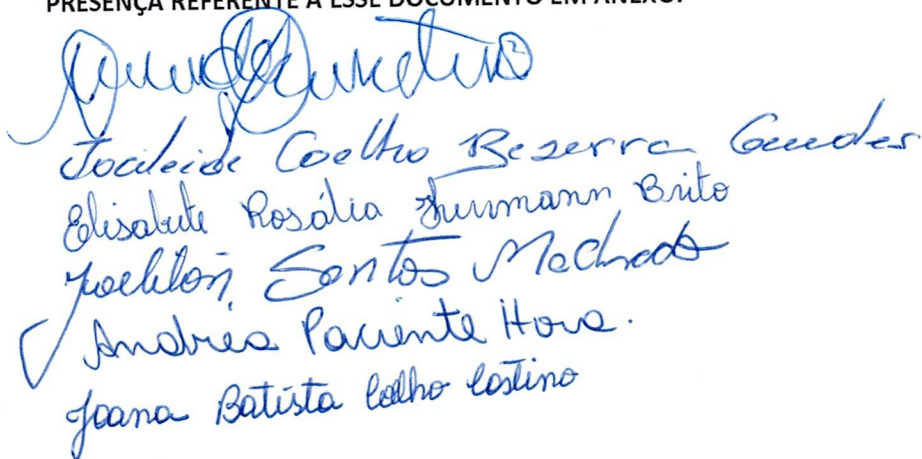 PRESENÇA REFERENTE A ESSE DOCUMENTO EM ANEXO.
Jocileide Coelho Bezerra Guedes
Elisabete Rosália Brito
Santos Machado
Andréa Paciente Hora.
Joana Batista Coelho Costino